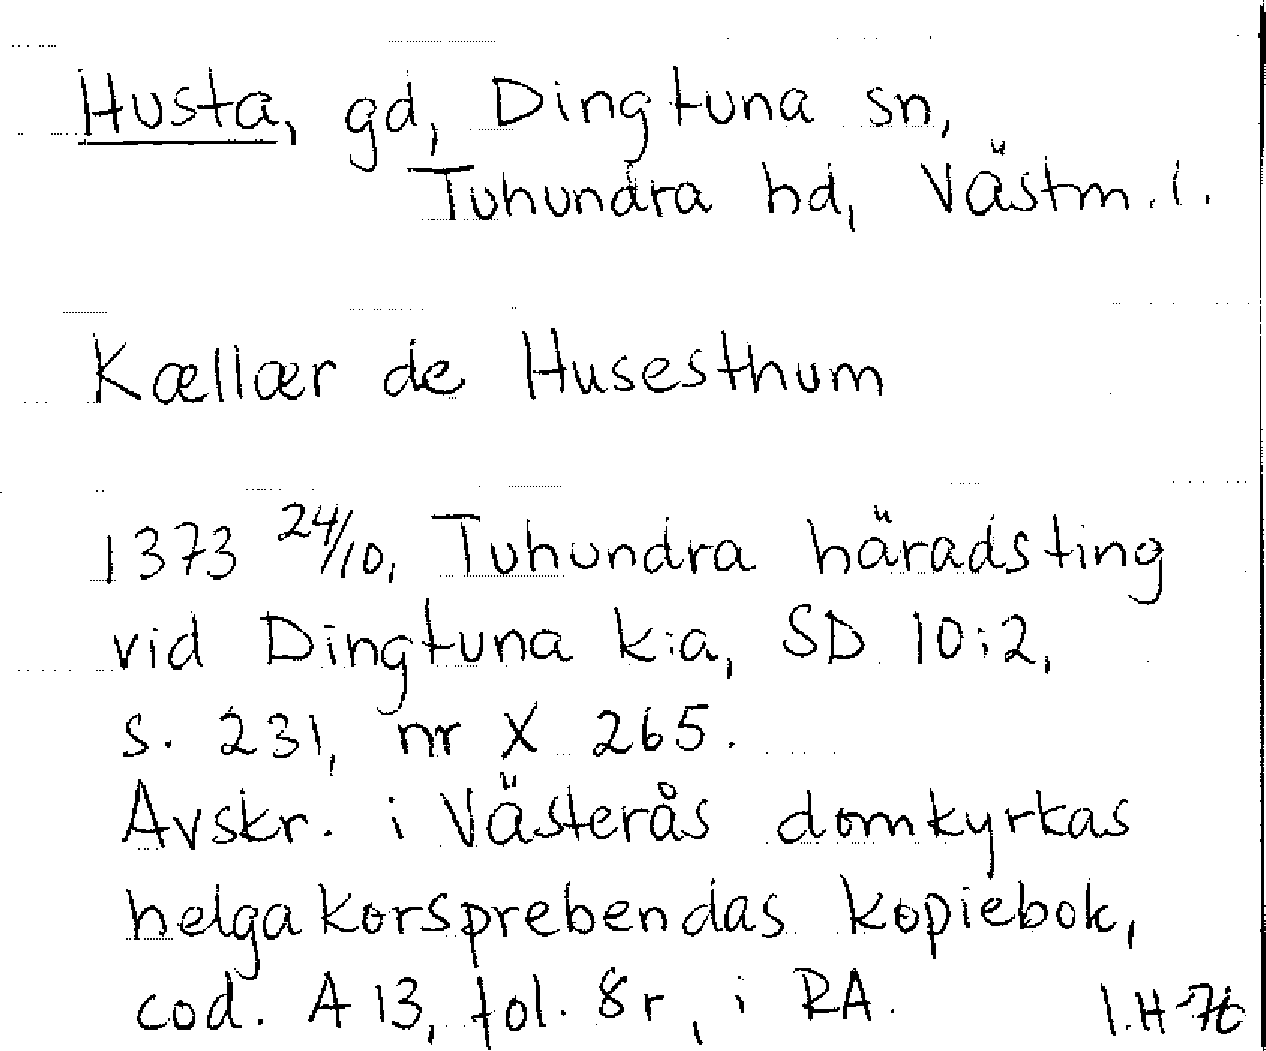 Husta, gd, Dingtuna sn,
Tuhundra hd, Västm. l.
Kællær de Husesthum
1373 24/10, Tuhundra häradsting
vid Dingtuna k:a, SD 10:2,
s. 231, nr X 265.
Avskr. i Västerås domkyrkas
helgakorsprebendas kopiebok,
cod. A 13, fol. 8r, i RA.
I.H-76